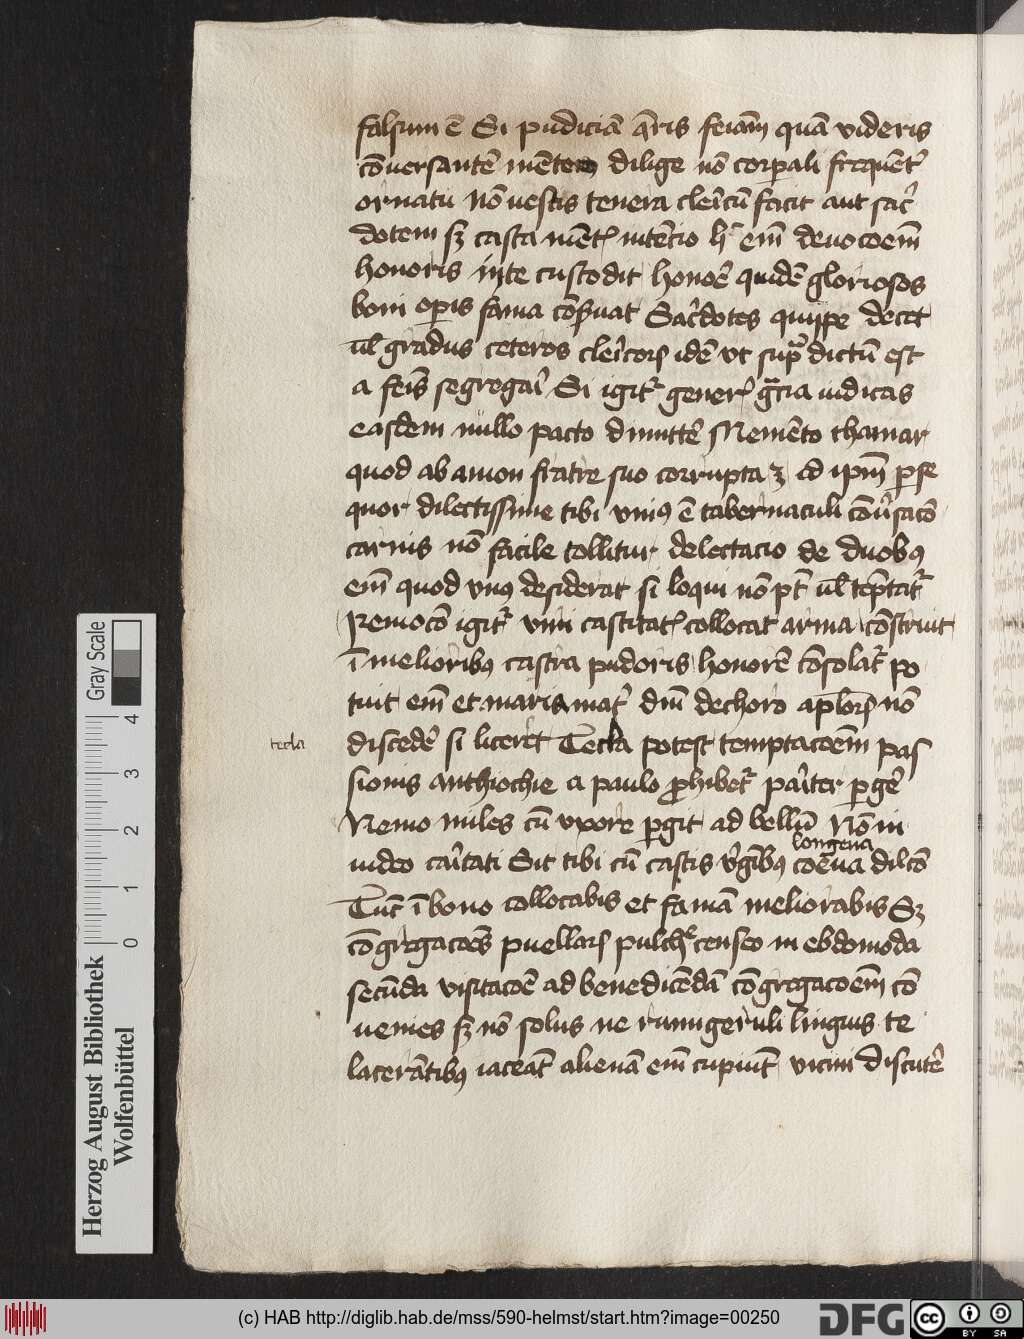 falsum ē Si pudiciā q̄ris feīam quā videris
cōuersantē mēte dilige nō corꝑali frequēt᷒
ornatu Nō vestis tenera cleīcū facit aut sac᷒
dotem sꝫ casta mēt intēcio h᷒ em̄ deuocoem̄
honoris in te custodit honoē quidē gloriosos
boni oꝑis fama cōsuat Sac᷒dotes quippe decet
ul̄ gradus ceteros cleīcoꝝ idē vt sup᷒ dictū est
a feīs segregai᷒ Si igit᷒ gener᷒ gr̄cia iudicas
easdem nullo pacto dimittē Memēto thamar
quod ab amon fratre suo corrupta ꝫ id ipm̄ ꝑse
quor dilectissime tibi vniꝰ ē tabernaculi cōu᷒sacō
carnis nō facile tollitur delectacio de duobꝰ
em̄ quod vnꝰ desiderat si loqui nō pt̄ ul̄ tēptat᷒
Remocō igit᷒ vim castitat collocat arma cōstruit
ī melioribꝰ castra pudoris honorē cōsolat᷒ po
tuit em̄ et maria mat᷒ dn̄i de choro apl̄oꝝ nō
discedē si liceret Tecla potest temptacoēm pas
tecla
sionis anthiochie a paulo ꝓhibet᷒ pai᷒ter ꝑgē
Nemo miles cū vxore ꝑgit ad bellū Nō in
longeua
uideo cai᷒tati Sit tibi cū castis v᷒gībꝰ coēua dilcō
Tūc ī bono collocabis et famā meliorabis Sꝫ
cōgregacoēs puellaꝝ pulchē censeo in ebdomoda
secūda visitacoē ad benedicēdā cōgregacoēm cō
uenies sꝫ nō solus ne rumigeruli linguis te
lacerātibꝰ iaceāt alienā em̄ cupiūt vicini discutē
Gray Scale
4
3
2
1
0
Herzog August Bibliothek
Wolfenbüttel
(c) HAB http://diglib.hab.de/mss/590-helmst/start.htm?image=00250
DFG
cc
BY SA